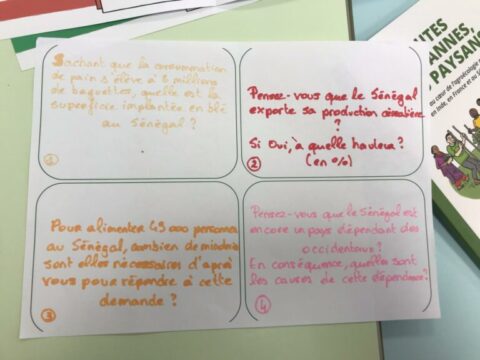 Sachant que la consommation
de pain s'élève à 8 millions
de baguettes, quelle est la
superficie implantée en blé
au Sénégal ?
1
Pensez-vous que le Sénégal
exporte sa production céréalière
?
Si Oui, à quelle hauteur ?
(en %)
2
Pour alimenter 49 000 personnes
au Sénégal, combien de
sont elles nécessaires d'après
vous pour répondre à cette
demande ?
3
Pensez-vous que le Sénégal est
encore un pays dépendant des
occidentaux ?
En conséquence, quelles sont
les causes de cette dépendance ?
4
PAYSANS
au cœur de l'agroécologie
en Inde, en France et au